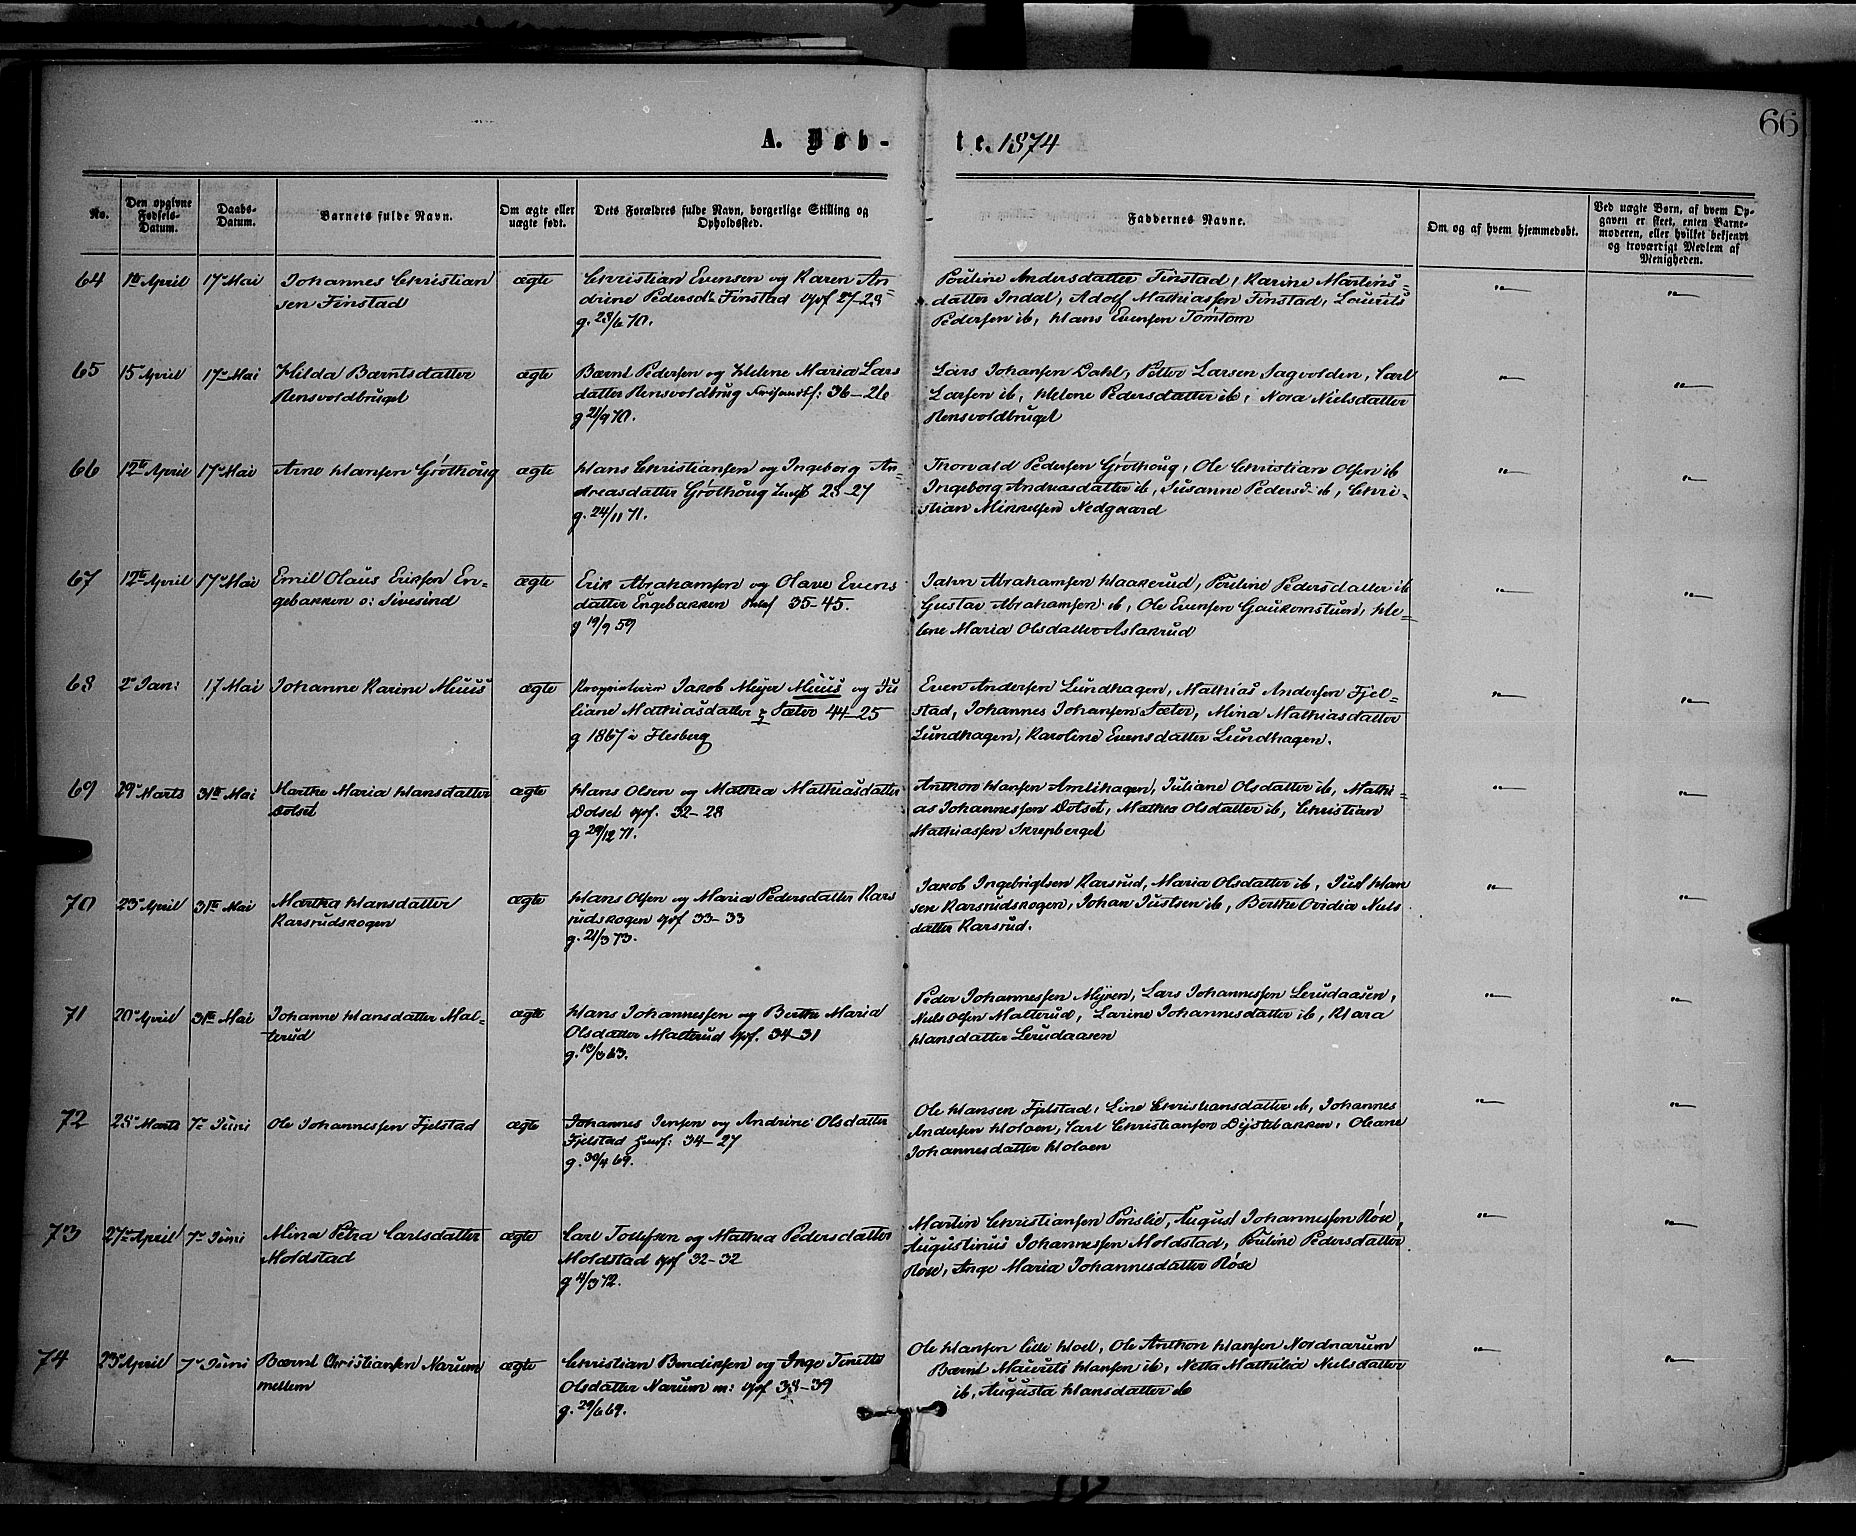 66
A. Døb-
te. 1874
No.
Den opgivne Fødsels-Datum.
Daabs-Datum.
Barnets fulde Navn.
Om ægte eller uægte født.
Dets Forældres fulde Navn, borgerlige Stilling og Opholdssted.
Faddernes Navne.
Om og af hvem hjemmedøbt.
Ved uægte Børn, af hvem Opgaven er skeet, enten Barnemoderen, eller hvilket bekjendt og troværdigt Medlem af Menigheden.
64 1ste April 17de Mai Johannes Christian
sen Finstad
ægte
Christian Evensen og Karen An-
drine Pedersd. Finstad 27-28
g. 23/6 70.
Pouline Andersdatter Finstad, Karine Martins-
datter Indal, Adolf Mathiassen Finstad, Laurits
Pedersen ib, Hans Evensen Tømtom
65 15de April 17de Mai Hilda Bærntsdatter
Rensvoldbruget
ægte
Bærnt Pedersen og Helene Maria Lars
datter Rensvoldbrug 36-26
g 21/9 70.
Lars Johansen Dahl, Petter Larsen Sagvolden, Carl
Larsen ib, Helene Pedersdatter ib, Nora Nielsdatter
Rensvoldbruget
66 12te April 17de Mai Arne Hansen Grøthoug
ægte
Hans Christiansen og Ingeborg An-
dreasdatter Grøthoug 28-27
g. 24/11 71.
Thorvald Pedersen Grøthoug, Ole Christian Olsen ib
Ingeborg Andreasdatter ib, Susanne Pedersd. ib, Chri-
stian Mikkelsen Nedgaard
67 12te April 17de Mai Emil Olaus Eriksen En-
gebakken o: Sivesind
ægte
Erik Abrahamsen og Olave Evens
datter Engebakken 35-45.
g 19/9 59
Jahn Abrahamsen Haakerud, Pouline Pedersdatter ib
Gustav Abrahamsen ib, Ole Evensen Gaukomstuen, He-
lene Maria Olsdatter Aslakrud
68 2de Jan: 17 Mai Johanne Karine Muus
ægte
Jakob Meyer Muus og Ju
liane Mathiasdatter Sæter 44-25
g 1867 i Flesberg
Even Andersen Lundhagen, Mathias Andersen Fjel-
stad, Johannes Johansen Sæter, Mina Mathiasdatter
Lundhagen, Karoline Evensdatter Lundhagen.
69 29de Marts 31te Mai Marthe Maria Hansdatter
Dolset
ægte
Hans Olsen og Mathea Mathiasdatter
Dolset 32-28
g 29/12 71.
Anthon Hansen Amlihagen, Juliane Olsdatter ib, Mathi-
as Johannessen Dolset, Mathea Olsdatter ib, Christian
Mathiassen Skrepberget
70 23de April 31te Mai Marthea Hansdatter
Karsrudskogen
ægte
Hans Olsen og Maria Pedersdatter Kars
rudskogen 33-33
g. 21/3 73.
Jakob Ingebrigtsen Karsrud, Maria Olsdatter ib, Just Han
sen Karsrudskogen, Johan Justsen ib, Berthe Ovidia Niels
datter Karsrud.
71 20de April 31te Mai Johanne Hansdatter Mal-
terud
ægte
Hans Johannessen og Berthe Maria
Olsdatter Malterud 34-31
g. 13/3 63.
Peder Johannessen Myren, Lars Johannessen Lerudaasen,
Niels Olsen Malterud, Larine Johannesdatter ib, Klara
Hansdatter Lerudaasen
72 28de Marts 7de Juni Ole Johannessen Fjelstad
ægte
Johannes Jensen og Andrine Olsdatter
Fjelstad 34-27
g. 30/4 69.
Ole Hansen Fjelstad, Line Christiansdatter ib, Johannes
Andersen Holaen, Carl Christiansen Dystebakken, Oleane
Johannesdatter Holaen
73 27de April 7de Juni Mina Petra Carlsdatter
Moldstad
ægte
Carl Tollefsen og Mathea Pedersdatter
Moldstad 32-32
g 4/3 72.
Martin Christiansen Prislie, August Johannessen Røse,
Augustinus Johannessen Moldstad, Pouline Pedersdatter
Røse, Inge Maria Johannesdatter Røse
74 23de April 7de Juni Bærnt Christiansen Narum
mellem
ægte
Christian Bendiksen og Inge Tinette
Olsdatter Narum m: 38-39
g. 29/6 69.
Ole Hansen Lille Hoel, Ole Anthon Hansen Nordnarum
Bærnt Mauritz Hansen ib, Netta Mathilia Nielsdatter
ib, Augusta Hansdatter ib